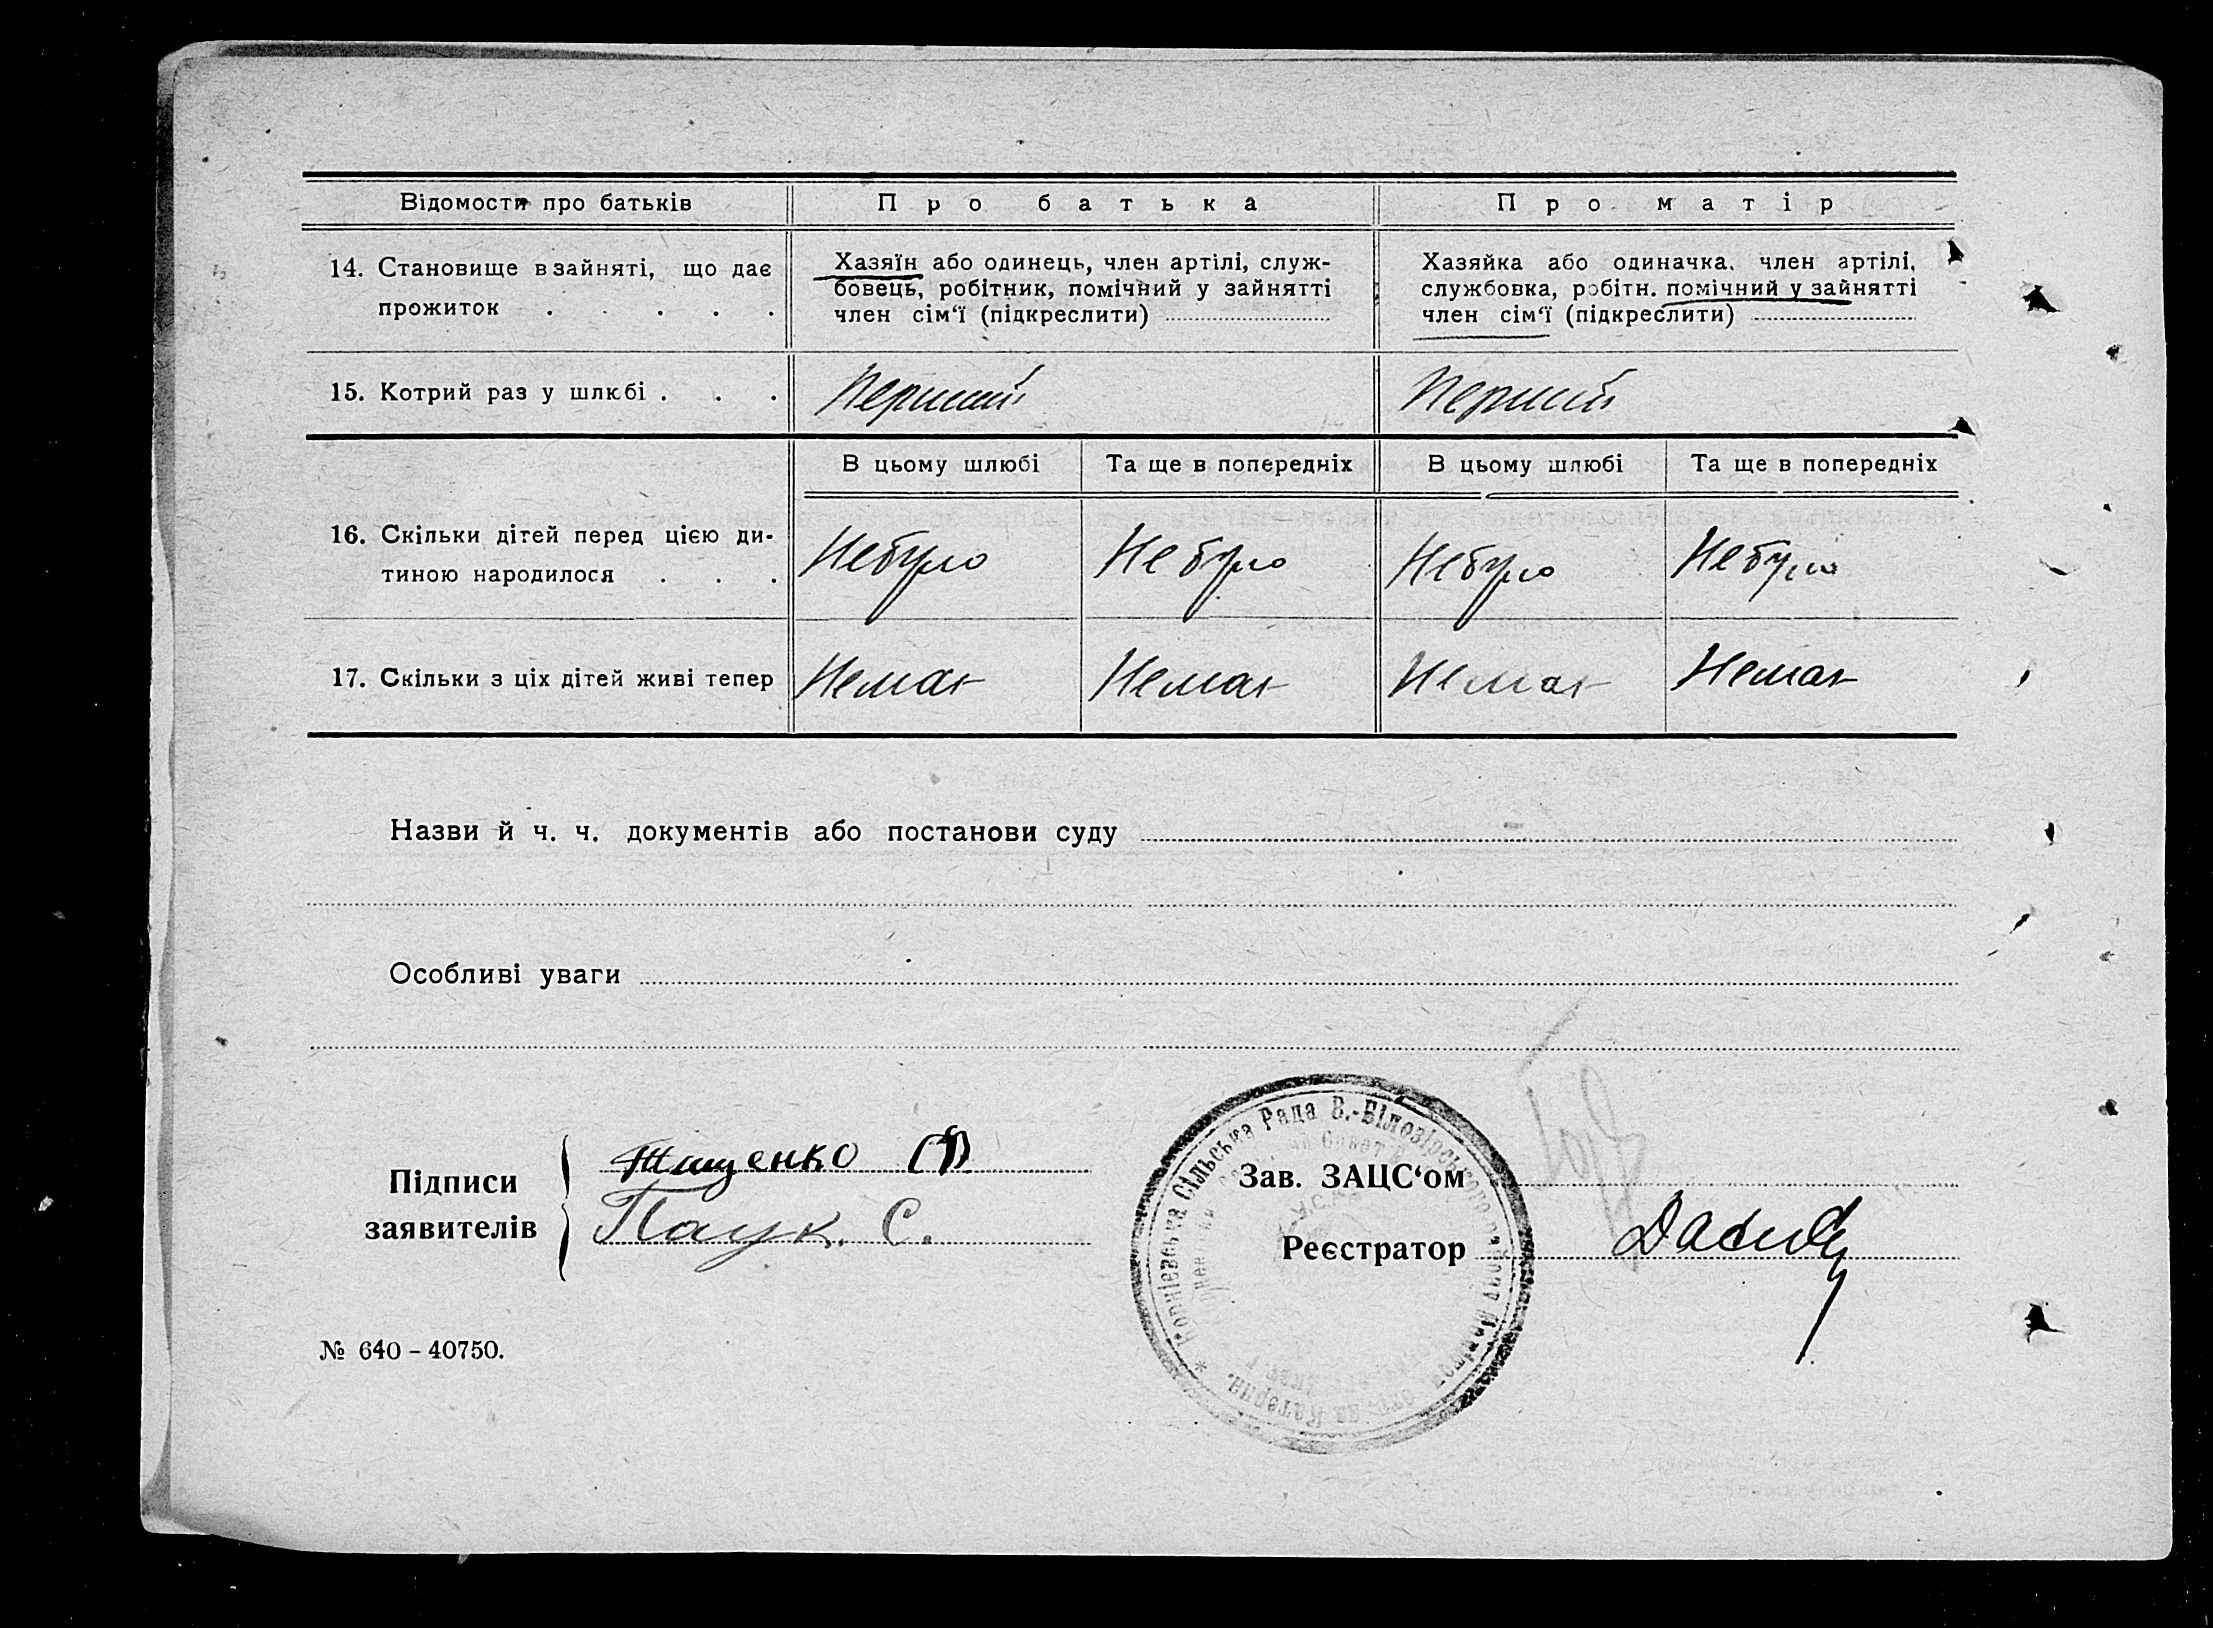 Відомости про батьків
Про батька
Про матір
14. Становище в зайняті, що дає
прожиток . . . . .
Хазяїн або одинець, член артілі, служ-
бовець, робітник, помічний у зайнятті
член сім'ї (підкреслити)
Хазяйка або одиначка, член артілі,
службовка, робітн. помічний у зайнятті
член сім'ї (підкреслити)
15. Котрий раз у шлюбі . . .
Перший
Перший
В цьому шлюбі
Та ще в попередніх
В цьому шлюбі
Та ще в попередніх
16. Скільки дітей перед цією ди-
тиною народилося . . .
Небуло
Небуло
Небуло
Небуло
17. Скільки з ціх дітей живі тепер
Немає
Немає
Немає
Немає
Назви й ч. ч. документів або постанови суду
Особливі уваги
Підписи
заявителів
Тищенко Ф
Паук. С.
Зав. ЗАЦС'ом
Реєстратор
Сільська Рада В.-Білозірського
на Катерин.
№ 640 – 40750.